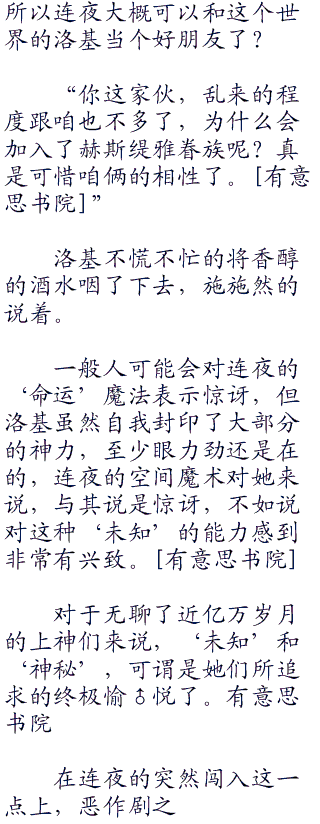 所以连夜大概可以和这个世
界的洛基当个好朋友了？
“你这家伙，乱来的程
度跟咱也不多了，为什么会
加入了赫斯缇雅眷族呢？真
是可惜咱俩的相性了。[有意
思书院]”
洛基不慌不忙的将香醇
的酒水咽了下去，施施然的
说着。
一般人可能会对连夜的
‘命运’魔法表示惊讶，但
洛基虽然自我封印了大部分
的神力，至少眼力劲还是在
的，连夜的空间魔术对她来
说，与其说是惊讶，不如说
对这种‘未知’的能力感到
非常有兴致。[有意思书院]
对于无聊了近亿万岁月
的上神们来说，‘未知’和
‘神秘’，可谓是她们所追
求的终极愉♂悦了。有意思
书院
在连夜的突然闯入这一
点上，恶作剧之